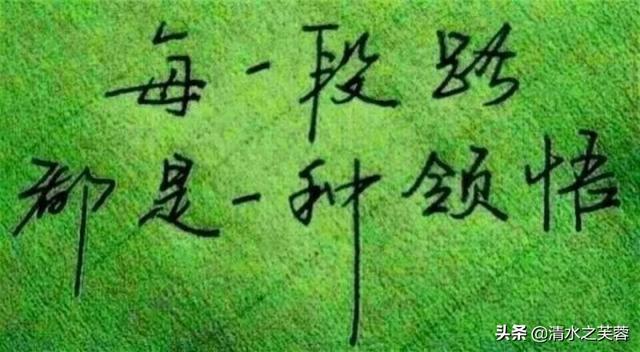 每一段路
都是一种领悟
头条 @清水之芙蓉